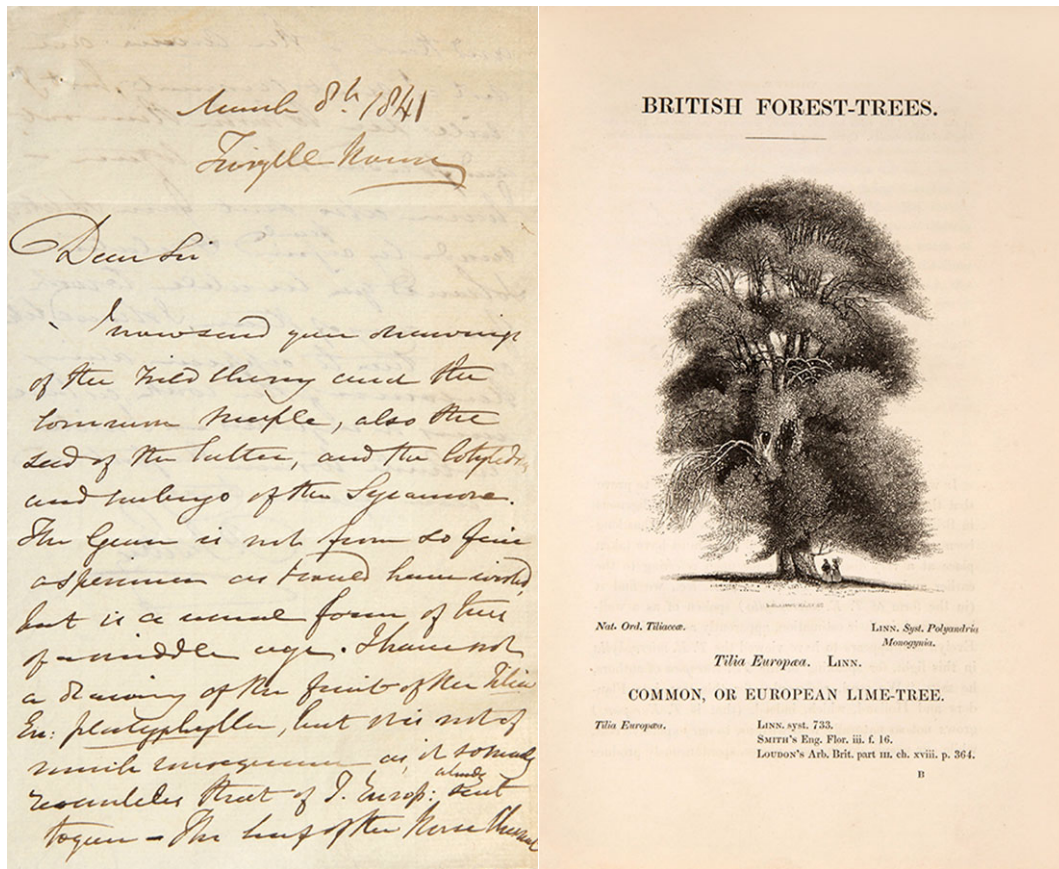 March 8th 1841
Twizell House
Dear Sir
I now send you drawings
of the Wild Cherry and the
common Maple, also the
seed of the latter, and the Cotyledon
and seedlings of the Sycamore.
The Gean is not from so fine
a specimen as I could have wished
but is a usual form of tree
of middle age. I have not
a drawing of the fruit of the Tilia
Eu: platyphylla, but this is not of
much consequence as it so much
resembles that of T. Europ: already sent
to you – The leaf of the Horse Chesnut
BRITISH FOREST-TREES.
Nat. Ord. Tiliaceæ.
LINN. Syst. Polyandria
Monogynia.
Tilia Europæa. LINN.
COMMON, OR EUROPEAN LIME-TREE.
Tilia Europæa.
LINN. syst. 733.
SMITH'S Eng. Flor. iii. f. 16.
LOUDON'S Arb. Brit. part III. ch. xviii. p. 364.
B